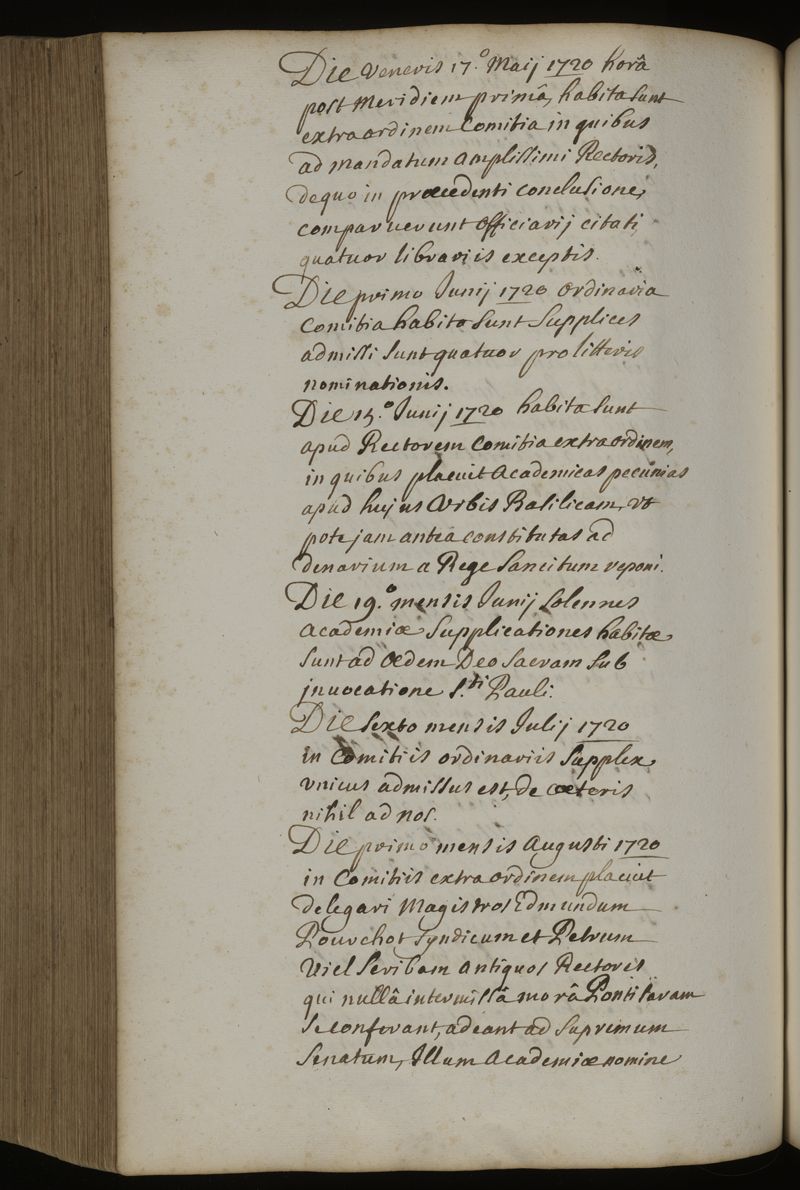 Die Veneris 17.° Maij 1720 horâ
post Meridiem primâ, habita sunt
extra ordinem Comitia in quibus
ad mandatum amplissimi Rectoris,
de quo in præcedenti conclusione,
comparuerunt officiarij citati
quatuor librariis exceptis.
Die primo Junij 1720 ordinaria
Comitia habita sunt Supplices
admissi sunt quatuor pro litteris
nominationis.
Die 15.° Junij 1720 habita sunt
apud Rectorem Comitia extra ordinem,
in quibus placuit Academicas pecunias
apud hujus Urbis Basilicam, ut
pote jam antea constitutas ad
denarium a Rege Sancitum reponi.
Die 19.° mensis Junij solennes
Academiæ Supplicationes habitæ
sunt ad Ædem Deo Sacram sub
jnvocatione S.ti Pauli.
Die sexto mensis Julij 1720
in Comitiis ordinariis Supplex
vnicus admissus est, de cæteris
nihil ad nos.
Die primo mensis Augusti 1720
in Comitiis extra ordinem placuit
delegari Magistros Edmundum
Pourchot Syndicum et Petrum
Viel Scribam antiquos Rectores
qui nullâ intermissâ morâ Pontisaram
se conferant, adeant ad Supremum
Senatum, Illum Academiæ nomine